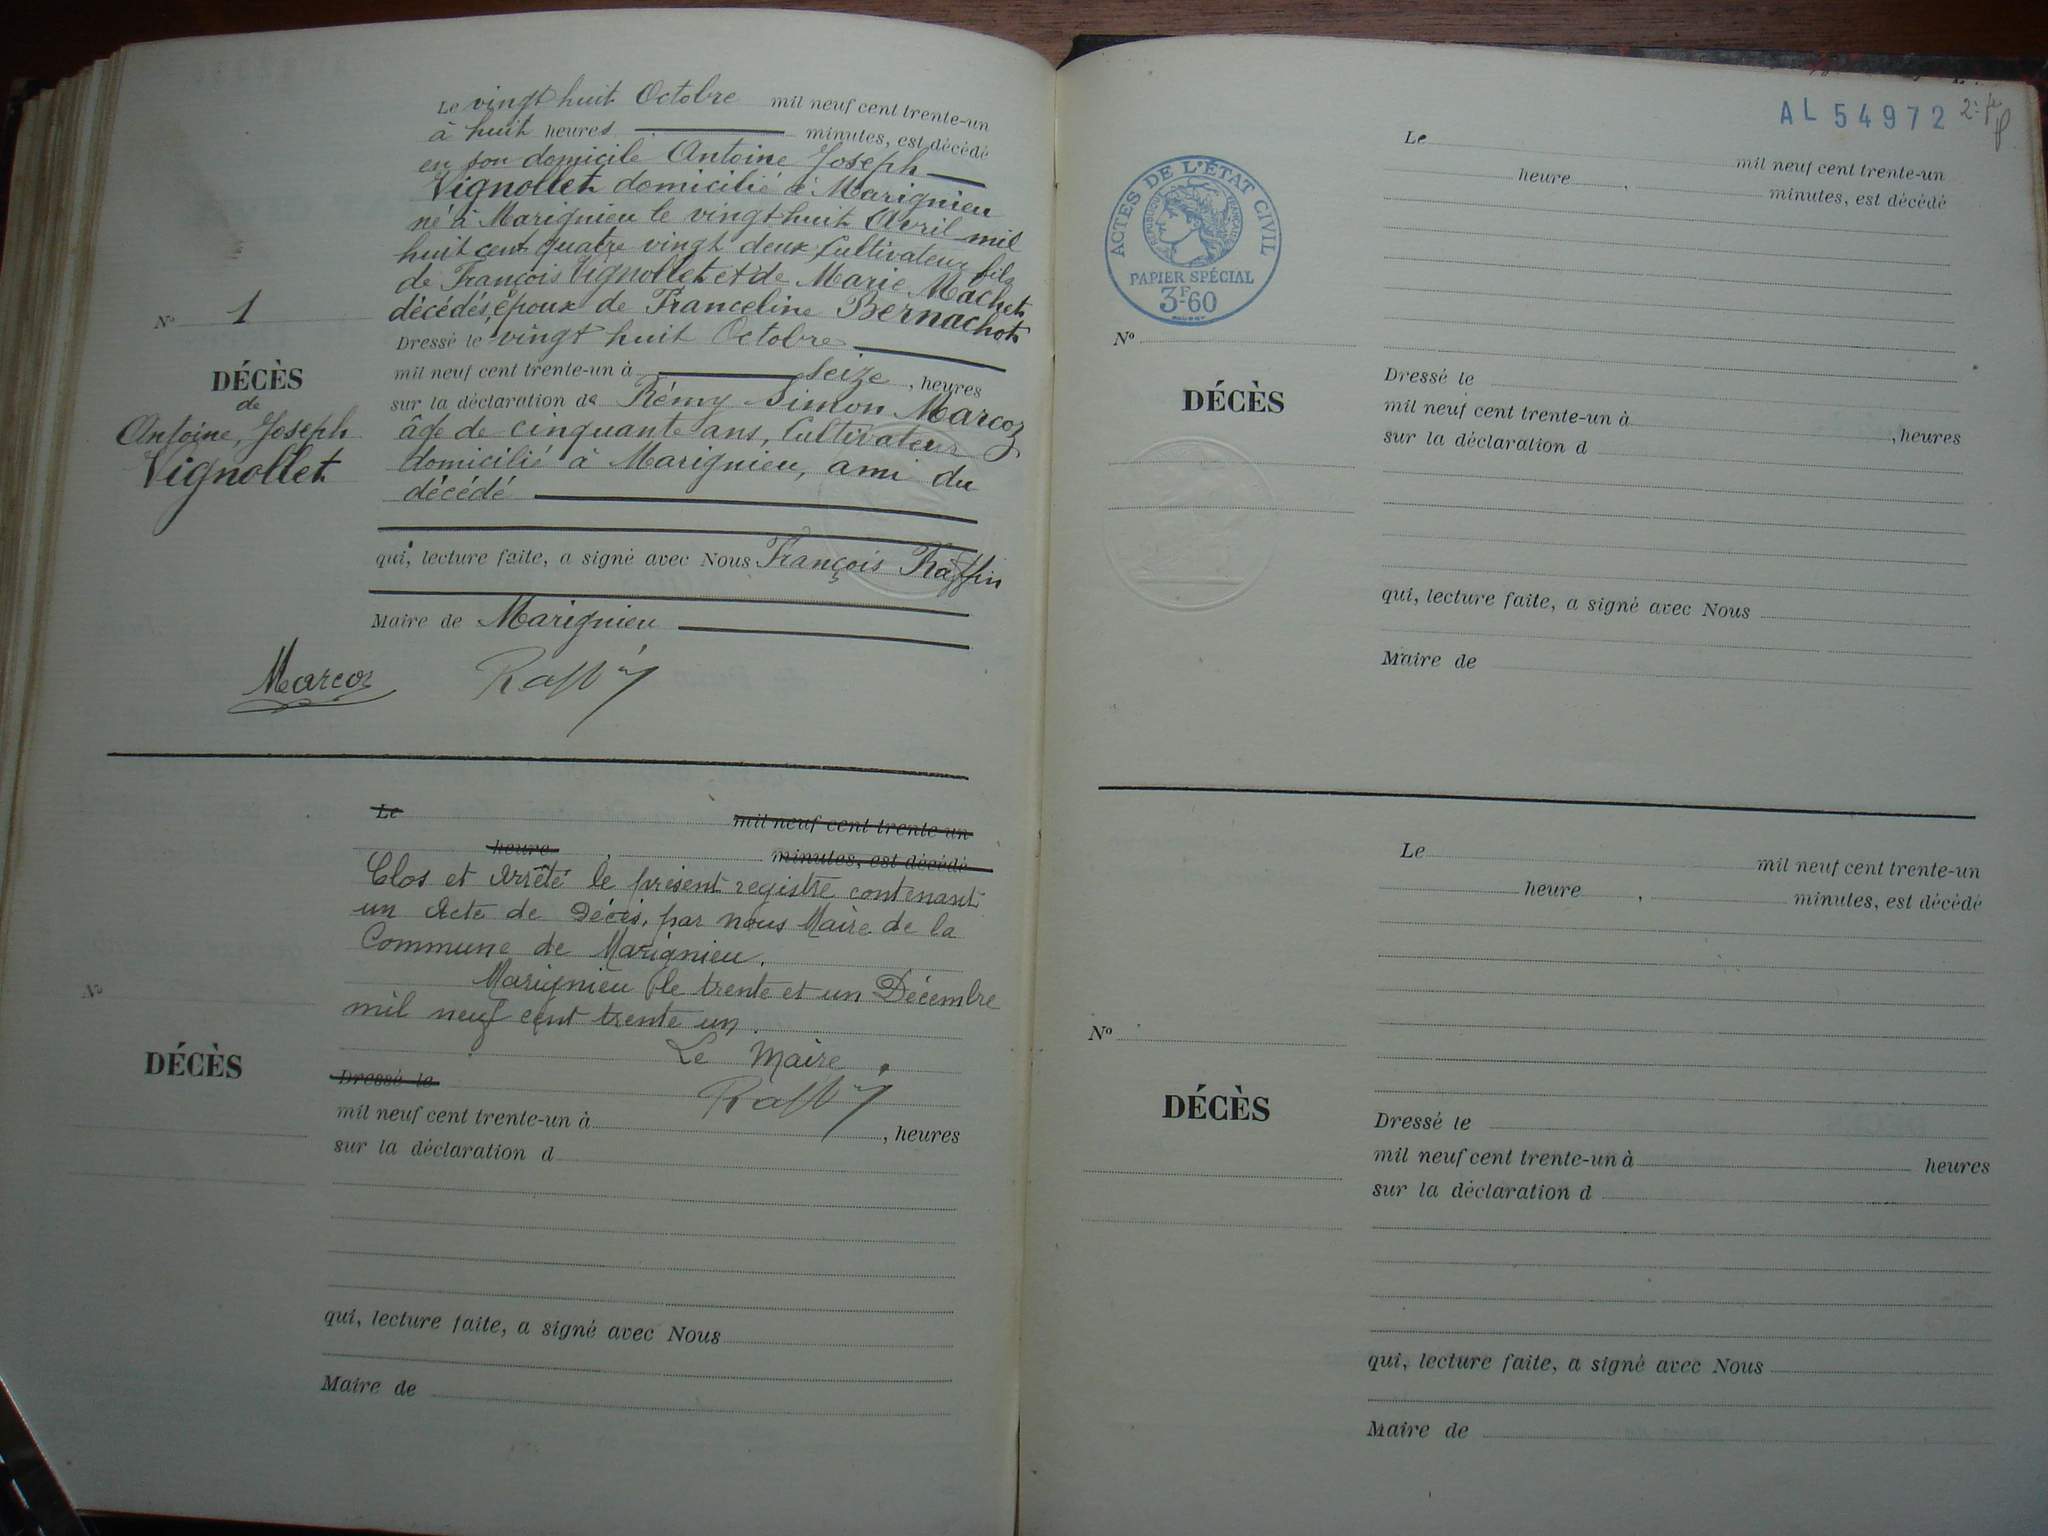 Le vingt huit Octobre mil neuf cent trente-un
à huit heures minutes, est décédé
en son domicile Antoine Joseph
Vignollet domicilié à Marignieu
né à Marignieu le vingt huit Avril mil
huit cent quatre vingt deux Cultivateur fils
de François Vignollet et de Marie Machet
décédés, époux de Franceline Bernachot
Dressé le vingt huit Octobre
mil neuf cent trente-un à seize, heures
sur la déclaration de Rémy Simon Marcoz
âge de cinquante ans, Cultivateur
domicilié à Marignieu, ami du
décédé
qui, lecture faite, a signé avec Nous François Raffin
Maire de Marignieu
Marcoz Raffin
No 1
DÉCÈS
de
Antoine, Joseph
Vignollet
Le mil neuf cent trente-un
heure , minutes, est décédé
Clos et Arrêté le présent registre contenant
un Acte de Décès, par nous Maire de la
Commune de Marignieu.
Marignieu le trente et un Décembre
mil neuf cent trente un.
Le Maire.
Raffin
Dressé le
mil neuf cent trente-un à , heures
sur la déclaration d
qui, lecture faite, a signé avec Nous
Maire de
No
DÉCÈS
AL 54972
ACTES DE L'ÉTAT CIVIL
RÉPUBLIQUE FRANÇAISE
PAPIER SPÉCIAL
3F-60
Le mil neuf cent trente-un
heure , minutes, est décédé
No
DÉCÈS
Dressé le
mil neuf cent trente-un à , heures
sur la déclaration d
qui, lecture faite, a signé avec Nous
Maire de
Le mil neuf cent trente-un
heure , minutes, est décédé
No
DÉCÈS
Dressé le
mil neuf cent trente-un à heures
sur la déclaration d
qui, lecture faite, a signé avec Nous
Maire de